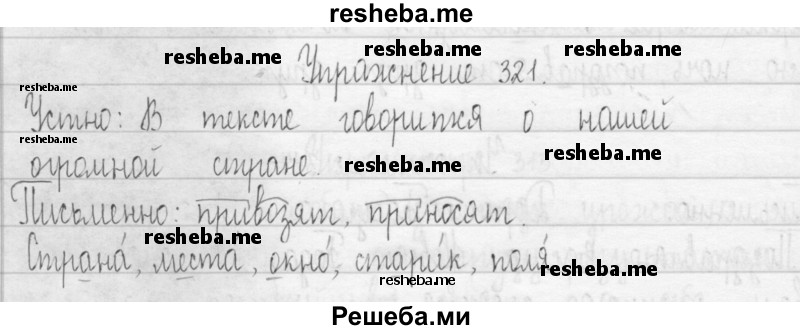 resheba.me
resheba.me resheba.me resheba.me
Упражнение 321.
resheba.me
Устно: В тексте говорится о нашей
resheba.me
огромной стране. resheba.me resheba.me
Письменно: привозят, приносят.
resheba.me
Страна́, места, окно́, стари́к, поля́
resheba.me
resheba.me
Решеба.ми